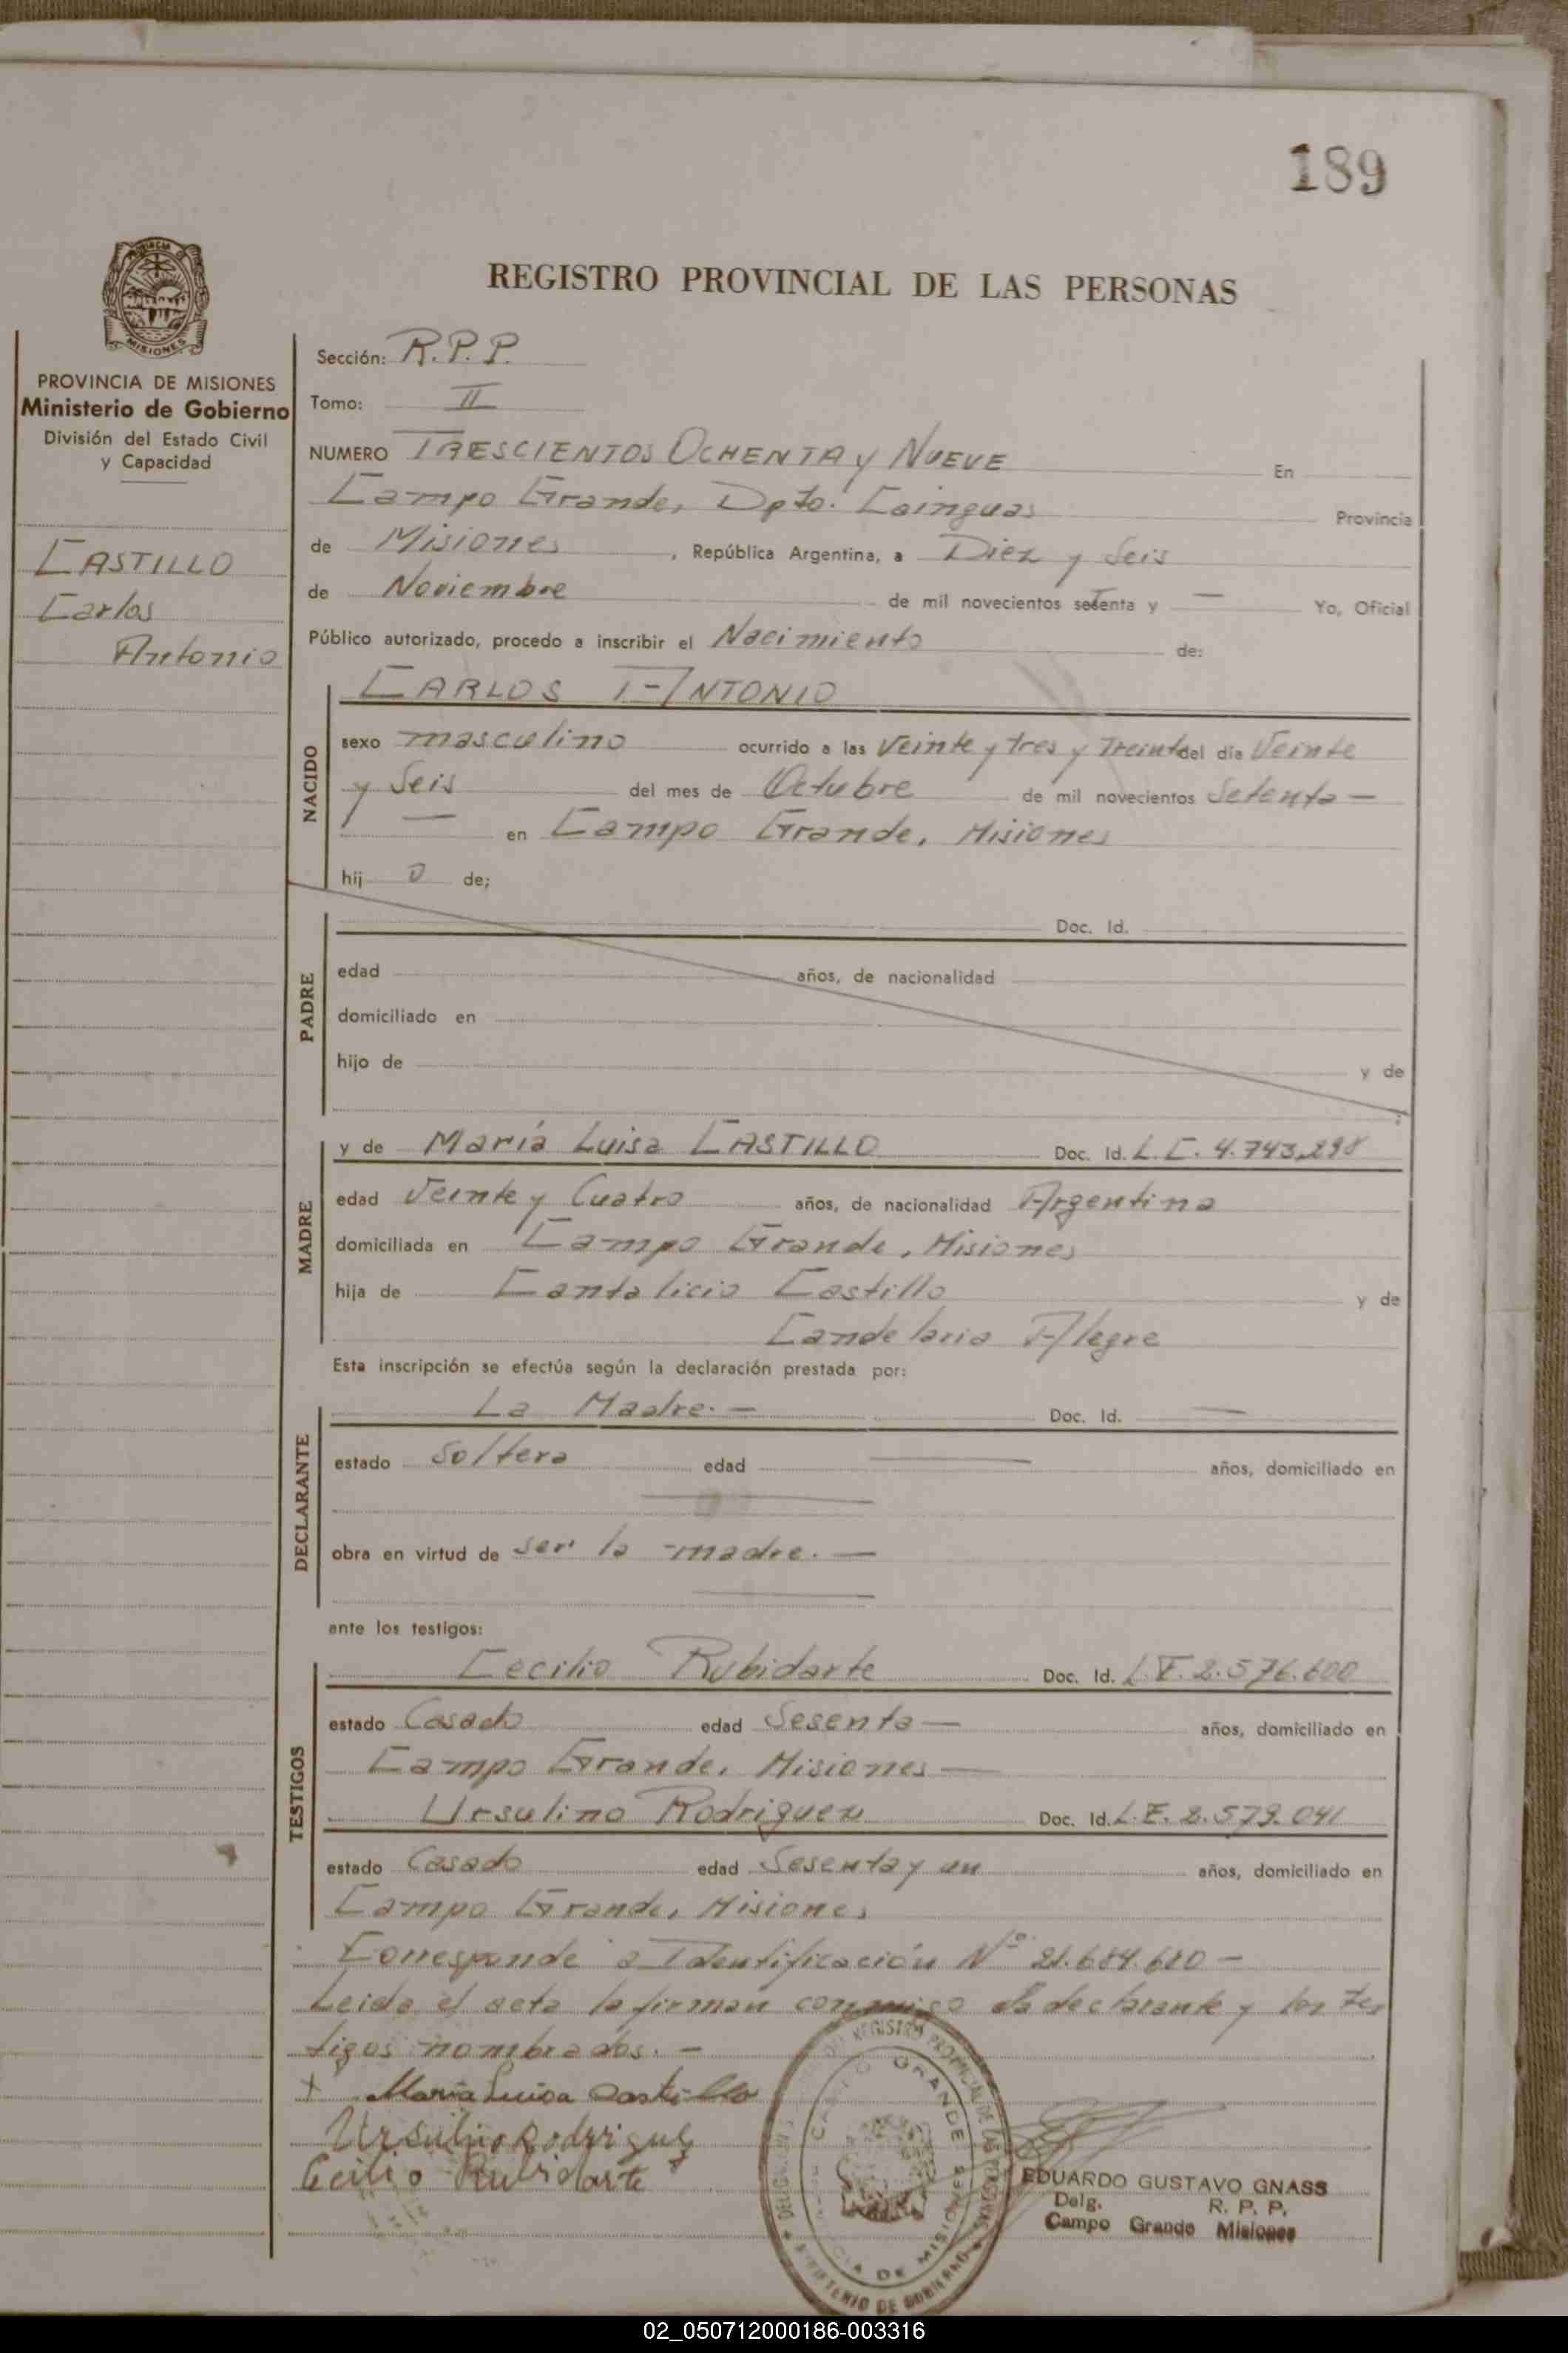 189
REGISTRO PROVINCIAL DE LAS PERSONAS
MISIONES
PROVINCIA DE MISIONES
Ministerio de Gobierno
División del Estado Civil
y Capacidad
CASTILLO
Carlos
Antonio
Sección: R.P.P.
Tomo: II
NUMERO TRESCIENTOS OCHENTA y NUEVE En
Campo Grande, Dpto. Cainguas Provincia
de Misiones, República Argentina, a Diez y Seis
de Noviembre de mil novecientos setenta y — Yo, Oficial
Público autorizado, procedo a inscribir el Nacimiento de:
NACIDO
CARLOS ANTONIO
sexo masculino ocurrido a las Veinte y tres y Treinta del día Veinte
y Seis del mes de Octubre de mil novecientos Setenta —
— en Campo Grande, Misiones
hij o de;
PADRE
Doc. Id.
edad años, de nacionalidad
domiciliado en
hijo de y de
:
MADRE
y de María Luisa CASTILLO Doc. Id. L.C. 4.743.298
edad Veinte y Cuatro años, de nacionalidad Argentina
domiciliada en Campo Grande, Misiones
hija de Cantalicio Castillo y de
Candelaria Alegre
Esta inscripción se efectúa según la declaración prestada por:
DECLARANTE
La Madre. — Doc. Id. —
estado Soltera edad — años, domiciliado en
—
obra en virtud de ser la madre. —
—
ante los testigos:
TESTIGOS
Cecilio Rubidarte Doc. Id. L.E. 2.576.600
estado Casado edad Sesenta — años, domiciliado en
Campo Grande, Misiones —
Ursulino Rodriguez Doc. Id. L.E. 2.579.041
estado Casado edad Sesenta y un años, domiciliado en
Campo Grande, Misiones
Corresponde a Identificación Nº 21.684.680 —
Leida el acta la firman conmigo la declarante y los tes
tigos nombrados. —
+ Maria Luisa Castillo
Ursulino Rodriguez
Cecilio Rubidarte
REGISTRO PROVINCIAL DE LAS PERSONAS
GRANDE
DE MISIONES
MINISTERIO DE GOBIERNO
EDUARDO GUSTAVO GNASS
Delg. R. P. P.
Campo Grande Misiones
02_050712000186-003316